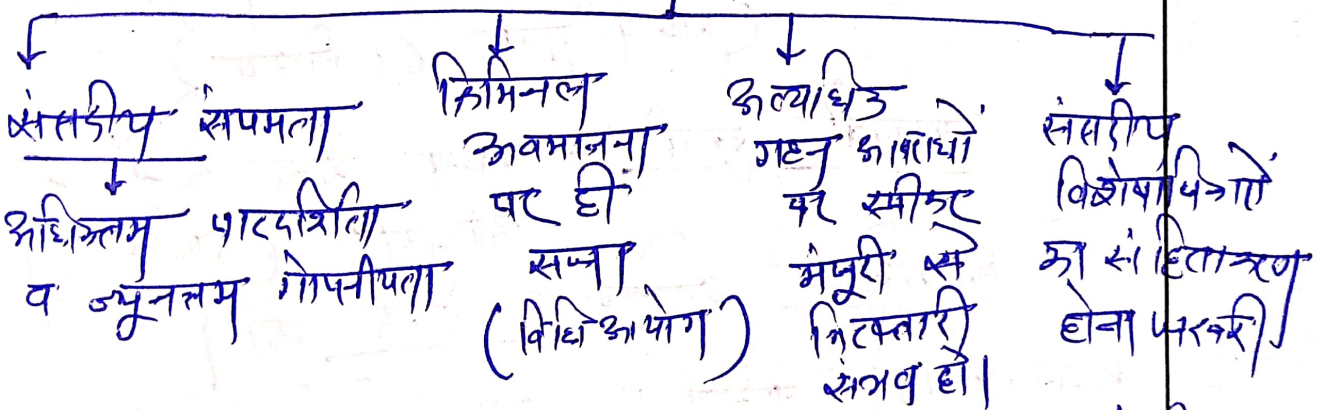 संसदीय संयमता
अधिकतम पारदर्शिता
व न्यूनतम गोपनीयता
क्रिमिनल
अवमानना
पर ही
सजा
(विधि आयोग)
अत्याधिक
गहन अपराधों
पर स्पीकर
मंजूरी से
गिरफ्तारी
संभव हो।
संसदीय
विशेषाधिकारों
का संहिताकरण
होना जरूरी।